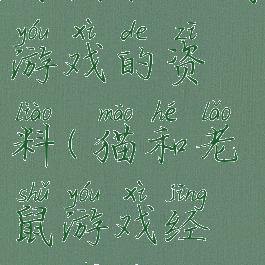 yóu xì de zī
游戏的资
liào māo hé lǎo
料(猫和老
shǔ yóu xì jīng
鼠游戏经